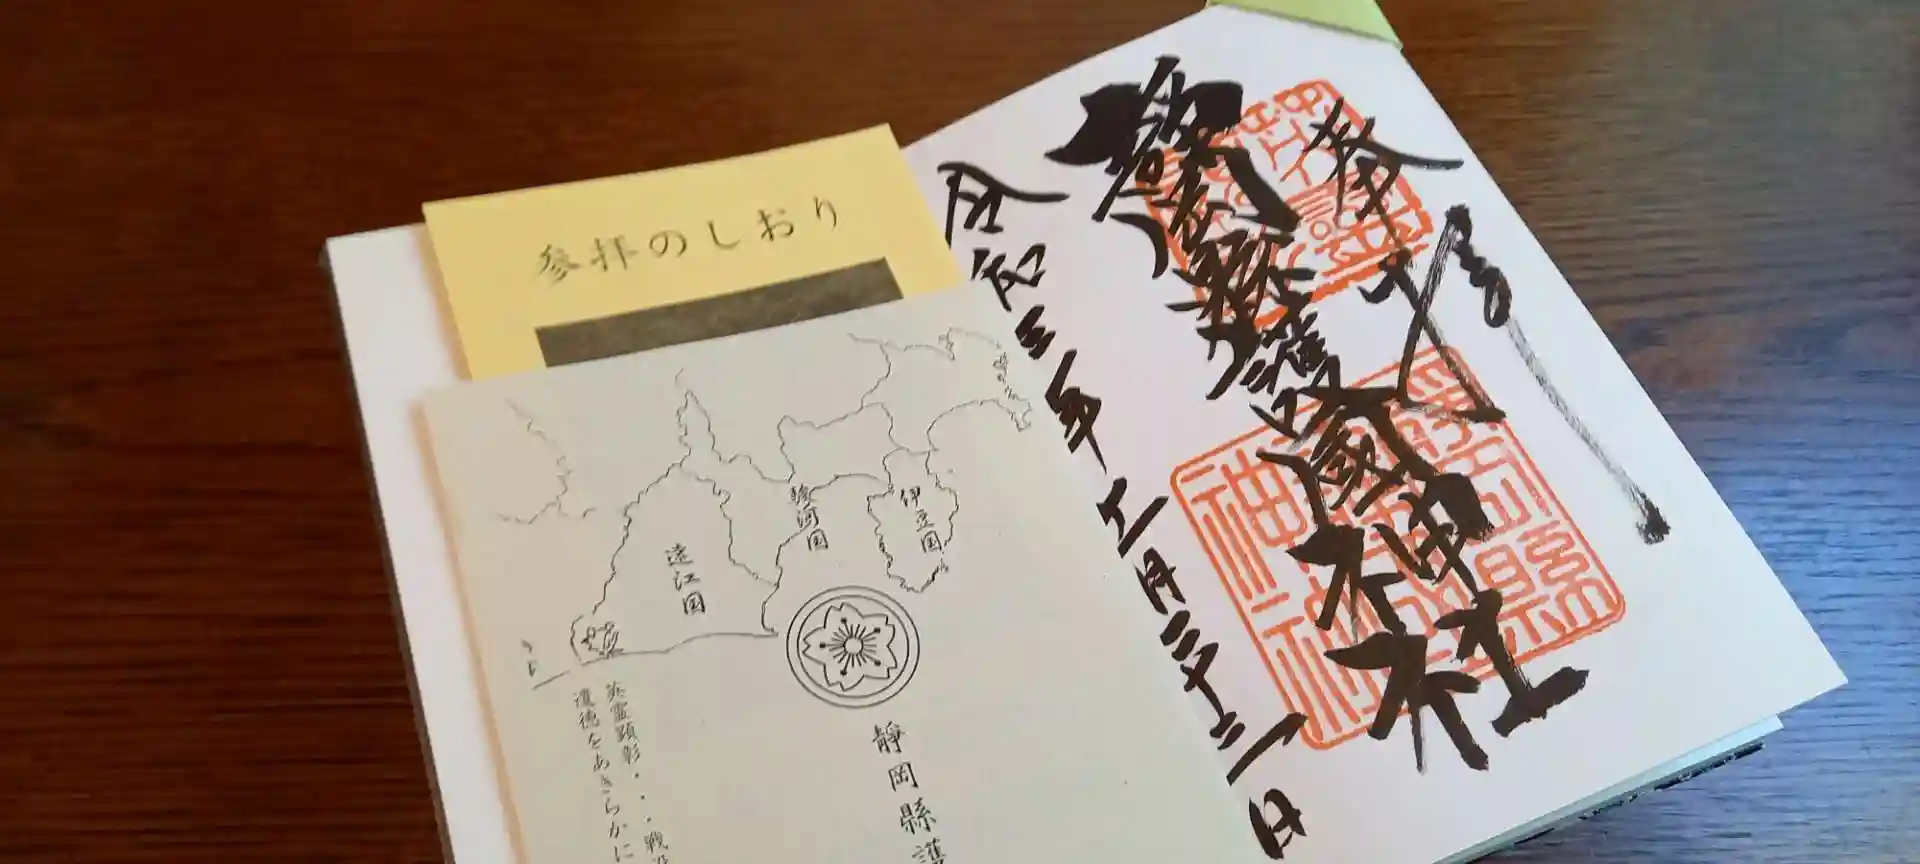 奉拝
静岡縣護國神社
令和三年七月二十二日
参拝のしおり
伊豆国
駿河国
遠江国
靜岡縣護
英霊顕彰・・・戦没
遺徳をあきらかに